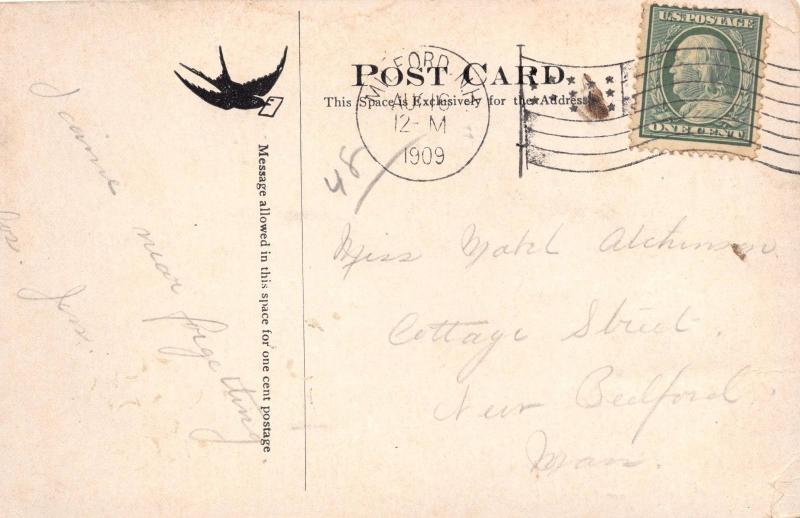 POST CARD
This Space is Exclusively for the Address
U.S. POSTAGE
ONE CENT
MILFORD
AUG 16
12- M
1909
48
Message allowed in this space for one cent postage.
I came near forgetting
Jos. Jess.
Miss Mabel Atchinson
Cottage Street.
New Bedford.
Mass.